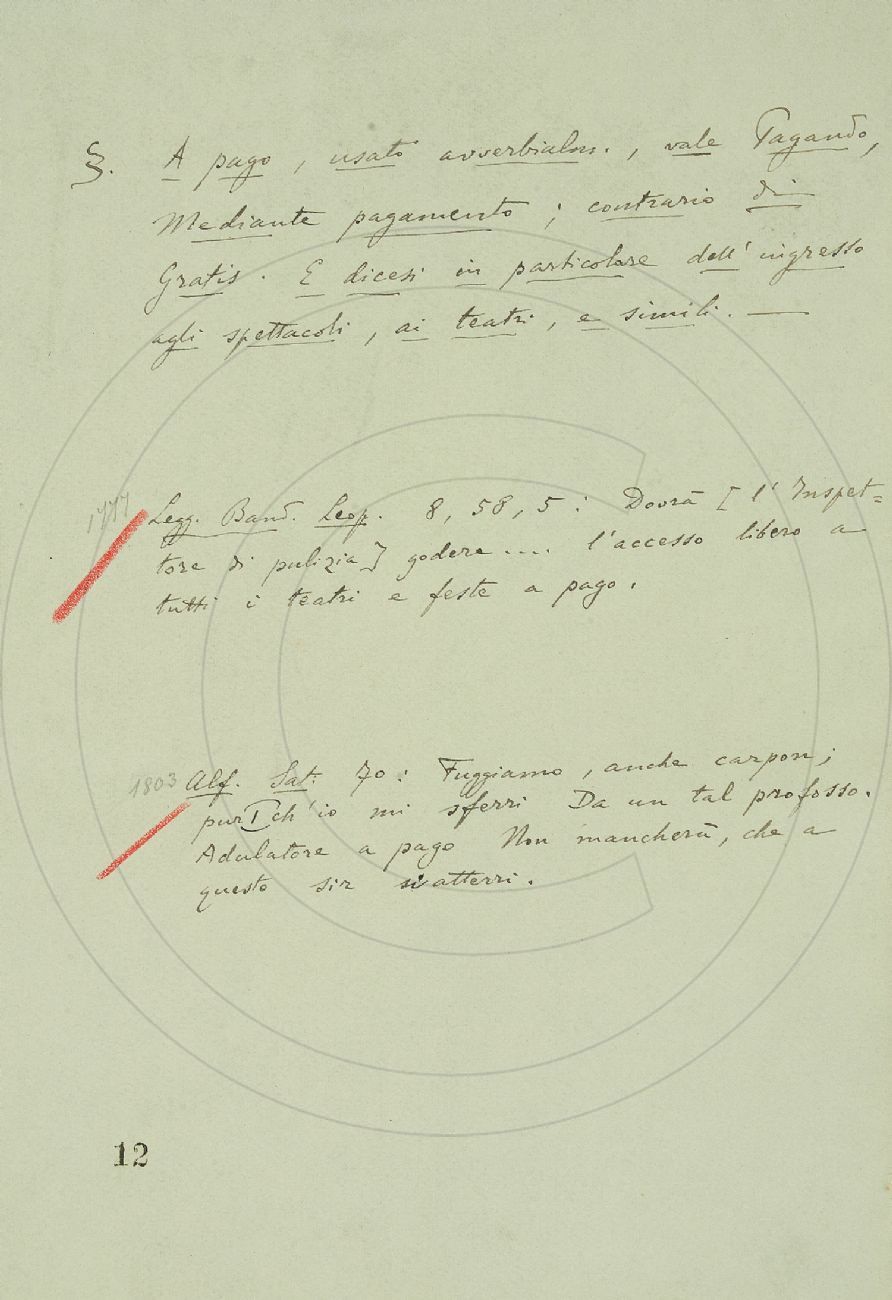 §. A pago, usato avverbialm., vale Pagando,
Mediante pagamento; contrario di
Gratis. E dicesi in particolare dell'ingresso
agli spettacoli, ai teatri, e simili. —
1777
Legg. Band. Leop. 8, 58, 5: Dovrà [l'Inspet=
tore di pulizia] godere .... l'accesso libero a
tutti i teatri e feste a pago.
1803
Alf. Sat. 70: Fuggiamo, anche carpon;
pur ch'io mi sferri Da un tal profosso.
Adulatore a pago Non mancherà, che a
questo sir si atterri.
12